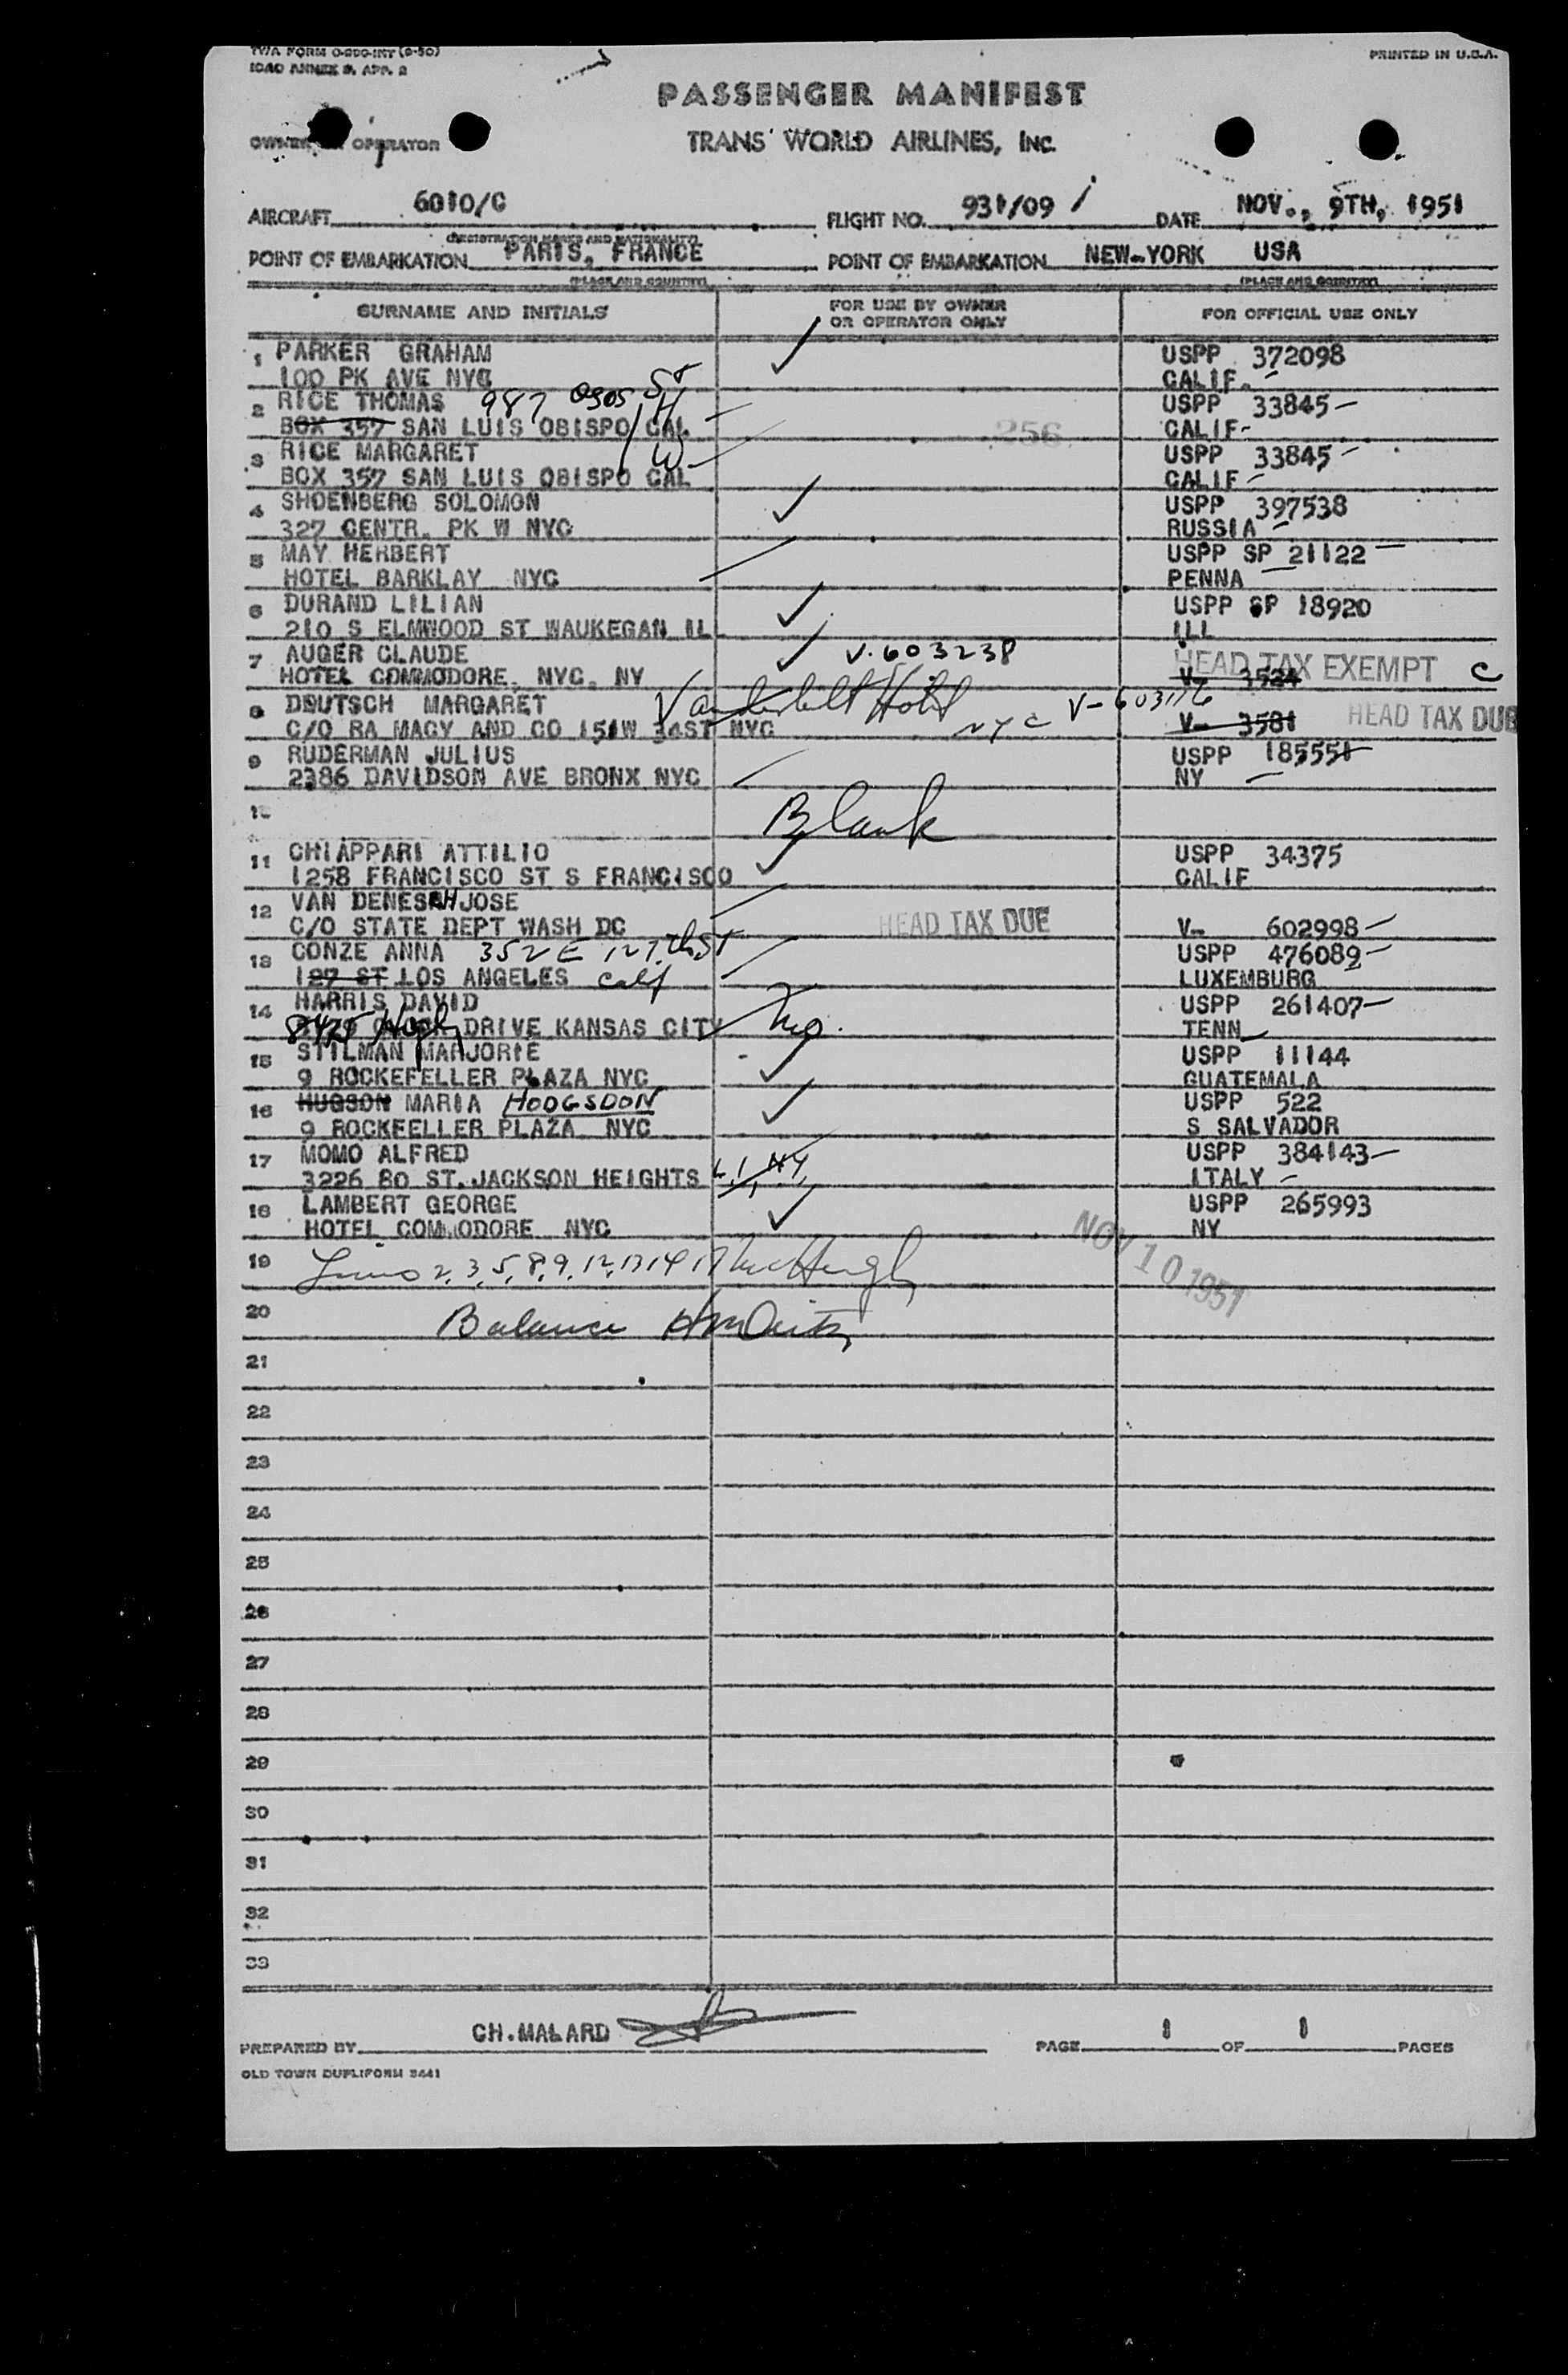 TWA FORM O-200-INT (9-50)
ICAO ANNEX 9, APP. 2
PRINTED IN U.S.A.
PASSENGER MANIFEST
OWNER OR OPERATOR
TRANS WORLD AIRLINES, INC.
AIRCRAFT 6010/C FLIGHT NO. 931/09 DATE NOV., 9TH, 1951
(REGISTRATION MARKS AND NATIONALITY)
POINT OF EMBARKATION PARIS, FRANCE POINT OF EMBARKATION NEW-YORK USA
(PLACE AND COUNTRY) (PLACE AND COUNTRY)
SURNAME AND INITIALS FOR USE BY OWNER OR OPERATOR ONLY FOR OFFICIAL USE ONLY
1 PARKER GRAHAM USPP 372098
100 PK AVE NYC CALIF.
2 RICE THOMAS 987 Osos St H USPP 33845
BOX 357 SAN LUIS OBISPO CAL 256 CALIF
3 RICE MARGARET W USPP 33845
BOX 357 SAN LUIS OBISPO CAL CALIF
4 SHOENBERG SOLOMON USPP 397538
327 CENTR. PK W NYC RUSSIA
5 MAY HERBERT USPP SP 21122
HOTEL BARKLAY NYC PENNA
6 DURAND LILIAN USPP SP 18920
210 S ELMWOOD ST WAUKEGAN IL ILL
7 AUGER CLAUDE V-603238 HEAD TAX EXEMPT C
HOTEL COMMODORE, NYC, NY V- 3524
8 DEUTSCH MARGARET Vanderbilt Hotel V-603176
C/O RA MACY AND CO 151W 34ST NYC NYC V- 3581 HEAD TAX DUE
9 RUDERMAN JULIUS USPP 185551
2386 DAVIDSON AVE BRONX NYC NY
10 Blank
11 CHIAPPARI ATTILIO USPP 34375
1258 FRANCISCO ST S FRANCISCO CALIF
12 VAN DENESEH JOSE
C/O STATE DEPT WASH DC HEAD TAX DUE V- 602998
13 CONZE ANNA 352 E 127th ST USPP 476089
127 ST LOS ANGELES Calif LUXEMBURG
14 HARRIS DAVID USPP 261407
DRIVE KANSAS CITY Mo. TENN
15 STILMAN MARJORIE USPP 11144
9 ROCKEFELLER PLAZA NYC GUATEMALA
16 HUGSON MARIA HODGSDON USPP 522
9 ROCKFELLER PLAZA NYC S SALVADOR
17 MOMO ALFRED USPP 384143
3226 80 ST. JACKSON HEIGHTS L.I, N.Y, ITALY
18 LAMBERT GEORGE USPP 265993
HOTEL COMMODORE NYC NY
19 Lines 2, 3, 5, 8, 9, 12, 13 14 17 McHugh NOV 10 1951
20 Balance
21
22
23
24
25
26
27
28
29
30
31
32
33
PREPARED BY CH.MALARD PAGE 1 OF 1 PAGES
OLD TOWN DUPLIFORM 3441